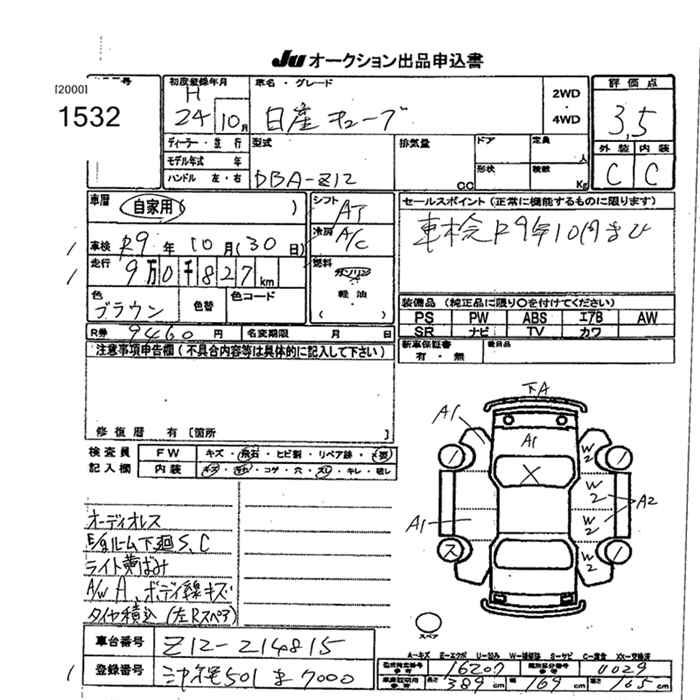 JU オークション出品申込書
[2000]
1532
初度登録年月
H
24 10月
車名・グレード
日産 キューブ
2WD
・
4WD
評価点
3.5
外装 内装
C C
ディーラー・並行
モデル年式 年
ハンドル 左・右
型式
DBA-Z12
排気量
cc
ドア
形状
定員
人
積載
Kg
車歴
自家用 ( )
車検 R9 年 10 月 (30 日)
走行 9万0千827km
色
ブラウン
色替
色コード
R券 9460 円
名変期限 月 日
シフト
AT
冷房
A/C
燃料
ガソリン
軽油
( )
セールスポイント (正常に機能するものに限ります)
車検R9年10月まで
装備品 (純正品に限り〇を付けてください)
PS PW ABS エアB AW
SR ナビ TV カワ
新車保証書
有・無
後日品
注意事項申告欄 (不具合内容等は具体的に記入して下さい)
修復歴 有 [箇所 ]
検査員
記入欄
FW キズ・飛石・ヒビ割・リペア跡・要
内装 キズ・コゲ・穴・スレ・キレ・破レ
オーディオレス
E/gルーム下廻S、C
ライト黄ばみ
A/W A、ボディ線キズ
タイヤ積込(左Rスペア)
下A
A1
A1
A1
X
W2
W2
W2
W2
A2
スペア
A-キズ E-エクボ U-凹み W-補修跡 S-サビ C-腐食 XX-交換済
車台番号 Z12-214815
登録番号 501 7000
16207
4029
長さ 389 cm
幅 169 cm
高さ 165 cm